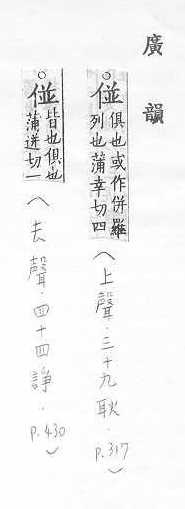 廣韻
○
俱也或作併羅
列也蒲幸切四
(上聲．三十九耿．p.317)
○
皆也俱也
蒲迸切一
(去聲．四十四諍．p.430)